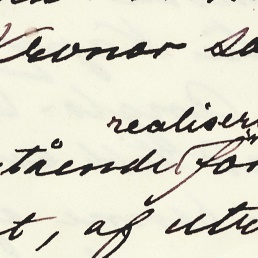 Kronor so
realiseri
stående för
t, af utr